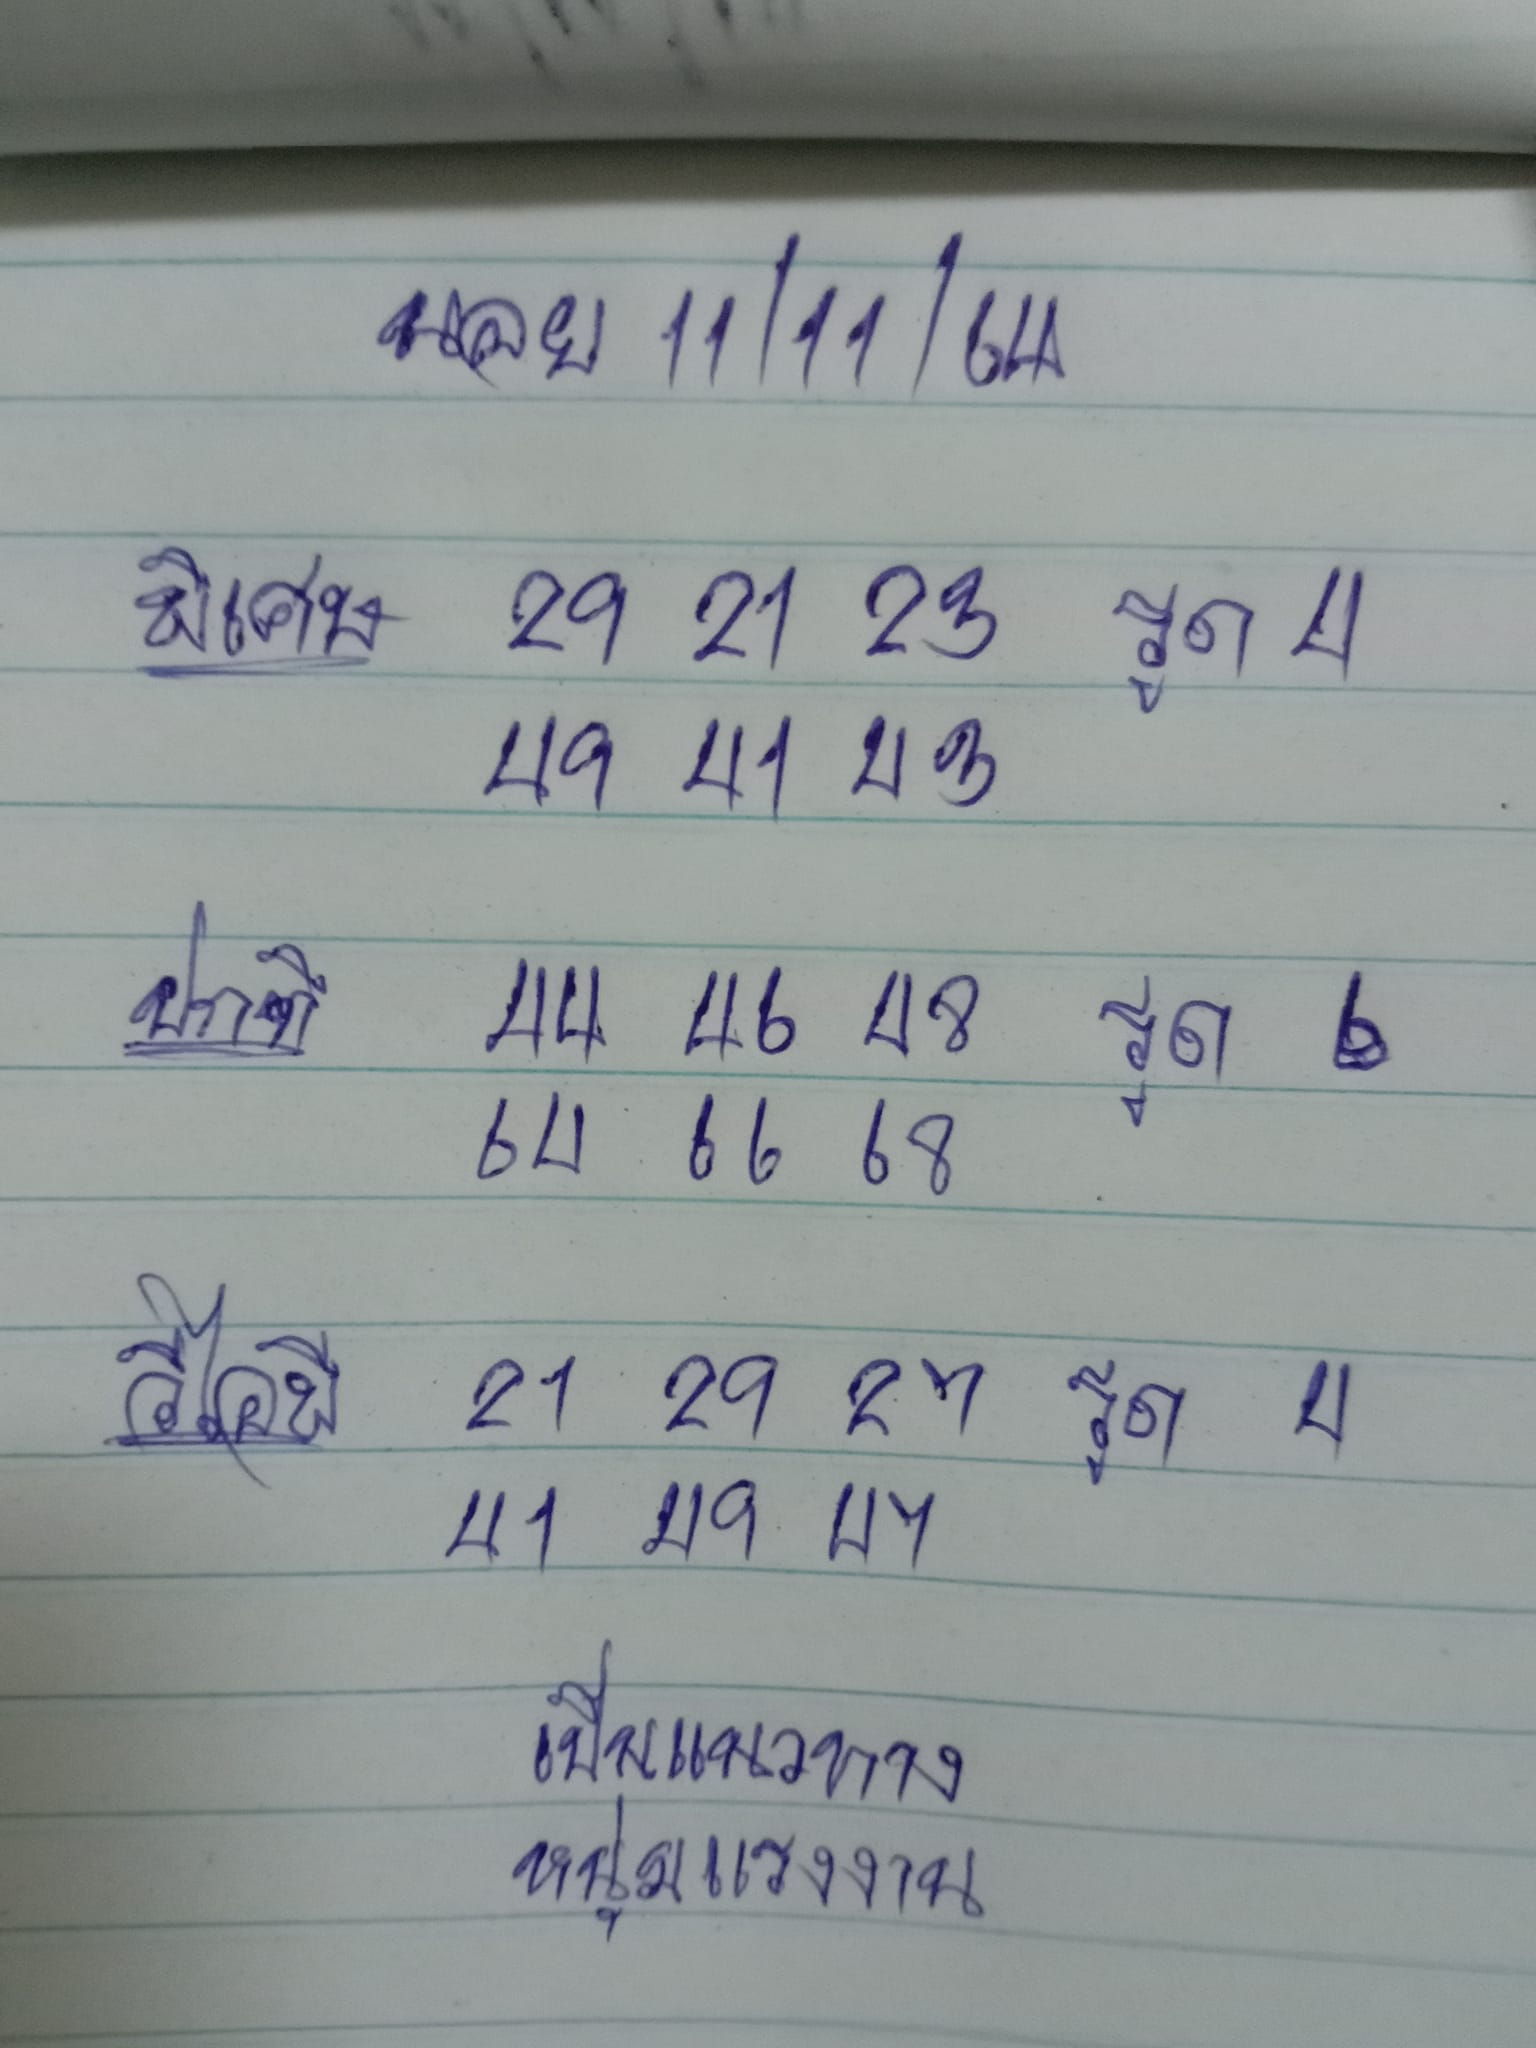 นอย 11/11/64
พิเศษ 29 21 23 รูด 4
49 41 43
ปกติ 44 46 48 รูด 6
64 66 68
วีไอพี 21 29 27 รูด 4
41 49 47
เป็นแนวทาง
หนุ่มแรงงาน